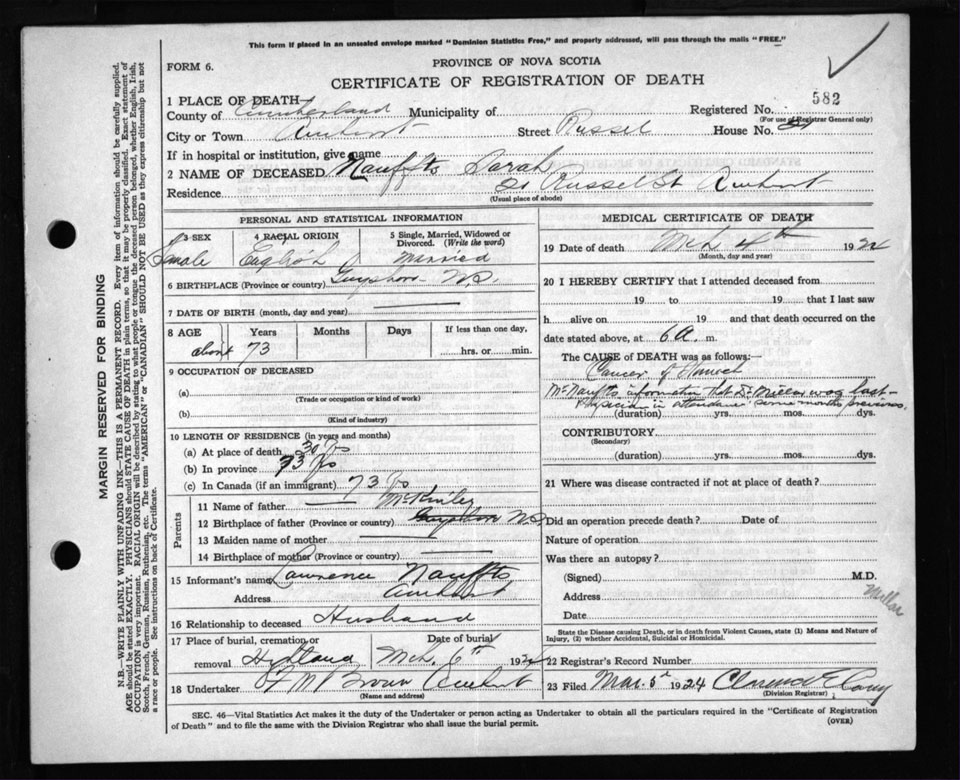 This form if placed in an unsealed envelope marked "Dominion Statistics Free," and properly addressed, will pass through the mails "FREE."
FORM 6.
PROVINCE OF NOVA SCOTIA
CERTIFICATE OF REGISTRATION OF DEATH
1 PLACE OF DEATH
582
County of Cumberland Municipality of Registered No.
(For use of Registrar General only)
City or Town Amherst Street Russel House No.
If in hospital or institution, give name
2 NAME OF DECEASED Nauffts Sarah
Residence Russel St Amherst
(Usual place of abode)
PERSONAL AND STATISTICAL INFORMATION
3 SEX 4 RACIAL ORIGIN 5 Single, Married, Widowed or Divorced. (Write the word)
Female English Married
6 BIRTHPLACE (Province or country) Guysboro N.S.
7 DATE OF BIRTH (month, day and year)
8 AGE Years Months Days If less than one day,
about 73 hrs. or min.
9 OCCUPATION OF DECEASED
(a)
(Trade or occupation or kind of work)
(b)
(Kind of industry)
10 LENGTH OF RESIDENCE (in years and months)
(a) At place of death 30 yrs
(b) In province 73 yrs
(c) In Canada (if an immigrant) 73 yrs
Parents
11 Name of father McKinley
12 Birthplace of father (Province or country) Guysboro N.S.
13 Maiden name of mother
14 Birthplace of mother (Province or country)
15 Informant's name Lawrence Nauffts
Address Amherst
16 Relationship to deceased Husband
17 Place of burial, cremation or Date of burial
removal Highland Mch 6th 1924
18 Undertaker F M Brown Amherst
(Name and address)
MEDICAL CERTIFICATE OF DEATH
19 Date of death Mch 4th 1924
(Month, day and year)
20 I HEREBY CERTIFY that I attended deceased from
19 to 19 that I last saw
h alive on 19 and that death occurred on
date stated above, at 6 A. m.
The CAUSE of DEATH was as follows:
Cancer of Stomach
Mr Nauffts informs me that Dr Millar was last
physician in attendance some months previous.
(duration) yrs. mos. dys.
CONTRIBUTORY
(Secondary)
(duration) yrs. mos. dys.
21 Where was disease contracted if not at place of death?
Did an operation precede death? Date of
Nature of operation
Was there an autopsy?
(Signed) M.D.
Address Millar
Date
State the Disease causing Death, or in death from Violent Causes, state (1) Means and Nature of
Injury, (2) whether Accidental, Suicidal or Homicidal.
22 Registrar's Record Number
23 Filed Mar. 5th 1924
(Division Registrar)
SEC. 46—Vital Statistics Act makes it the duty of the Undertaker or person acting as Undertaker to obtain all the particulars required in the "Certificate of Registration
of Death" and to file the same with the Division Registrar who shall issue the burial permit.
(OVER)
MARGIN RESERVED FOR BINDING
N.B.—WRITE PLAINLY WITH UNFADING INK—THIS IS A PERMANENT RECORD. Every item of information should be carefully supplied.
AGE should be stated EXACTLY. PHYSICIANS should STATE CAUSE OF DEATH in plain terms, so that it may be properly classified. Exact statement of
OCCUPATION is very important. RACIAL ORIGIN will be described by stating to what people or tongue the deceased person belonged, whether English, Irish,
Scotch, French, German, Russian, Ruthenian, etc. The terms "AMERICAN" or "CANADIAN" SHOULD NOT BE USED as they express citizenship but not
a race or people. See instructions on back of Certificate.